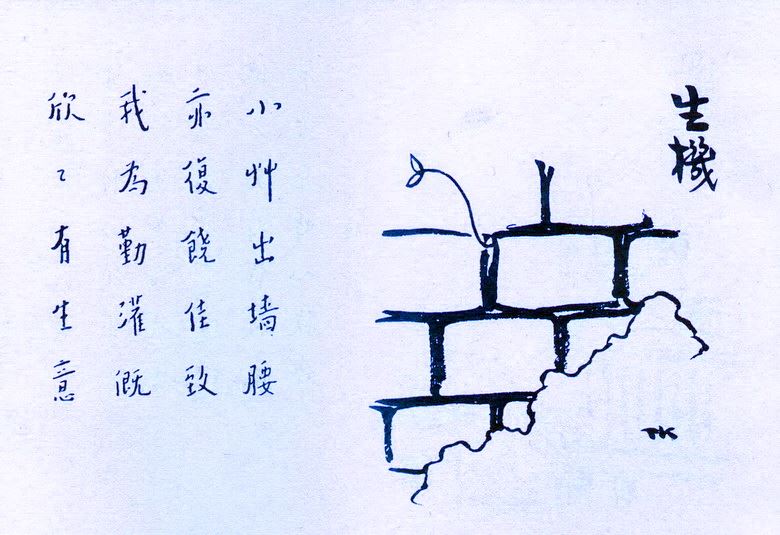 生機
TK
小艸出墙腰
亦復饒佳致
我為勤灌溉
欣〻有生意